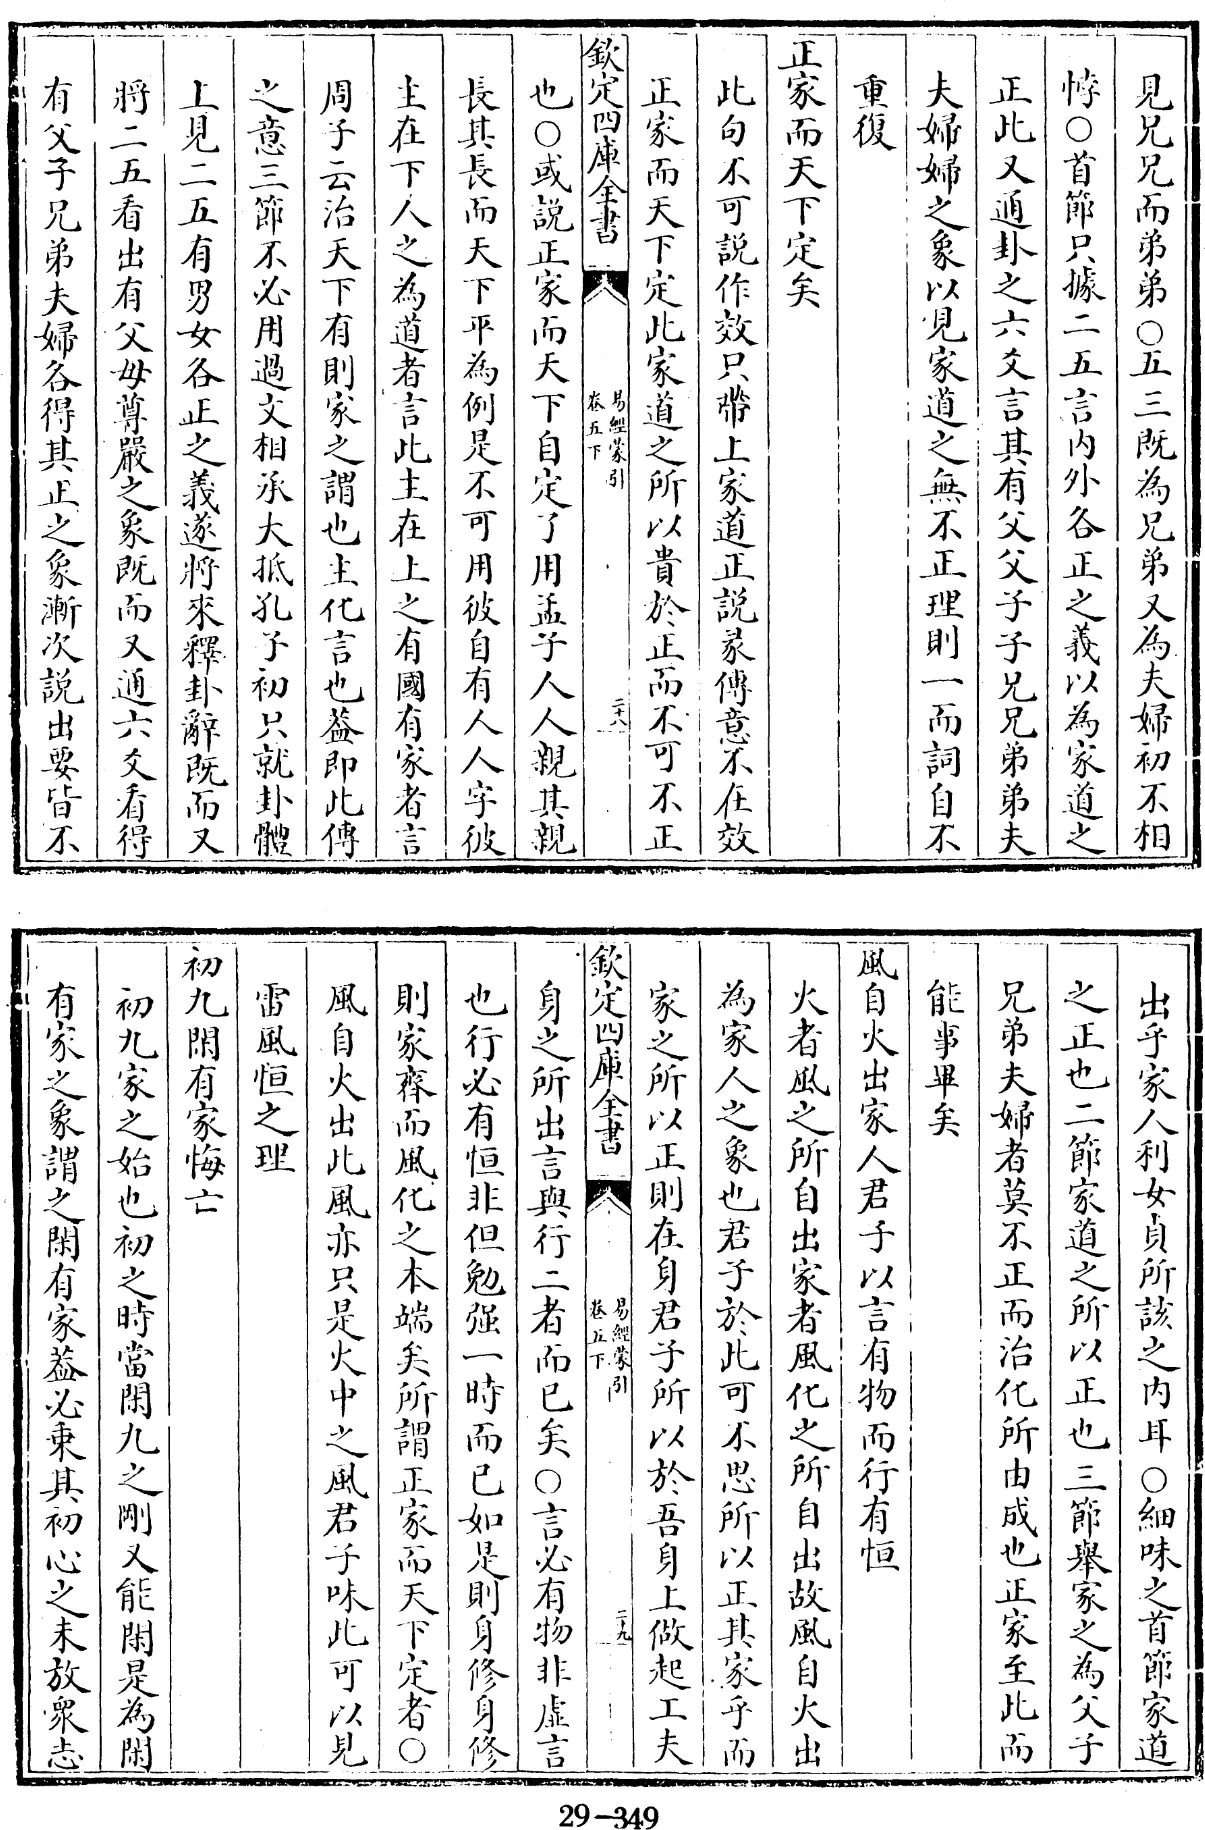 見兄兄而弟弟○五三既為兄弟又為夫婦初不相
悖○首節只據二五言内外各正之義以為家道之
正此又通卦之六爻言其有父父子子兄兄弟弟夫
夫婦婦之象以見家道之無不正理則一而詞自不
重復
正家而天下定矣
此句不可説作效只帶上家道正説彖傳意不在效
正家而天下定此家道之所以貴於正而不可不正
欽定四庫全書
易經蒙引
卷五下
二十八
也○或説正家而天下自定了用孟子人人親其親
長其長而天下平為例是不可用彼自有人人字彼
主在下人之為道者言此主在上之有國有家者言
周子云治天下有則家之謂也主化言也蓋即此傳
之意三節不必用過文相承大抵孔子初只就卦體
上見二五有男女各正之義遂將來釋卦辭既而又
將二五看出有父母尊嚴之象既而又通六爻看得
有父子兄弟夫婦各得其正之象漸次説出要皆不
出乎家人利女貞所該之内耳○細味之首節家道
之正也二節家道之所以正也三節舉家之為父子
兄弟夫婦者莫不正而治化所由成也正家至此而
能事畢矣
風自火出家人君子以言有物而行有恒
火者風之所自出家者風化之所自出故風自火出
為家人之象也君子於此可不思所以正其家乎而
家之所以正則在身君子所以於吾身上做起工夫
欽定四庫全書
易經蒙引
卷五下
二十九
身之所出言與行二者而已矣○言必有物非虛言
也行必有恒非但勉强一時而已如是則身修身修
則家齊而風化之本端矣所謂正家而天下定者○
風自火出此風亦只是火中之風君子味此可以見
雷風恒之理
初九閑有家悔亡
初九家之始也初之時當閑九之剛又能閑是為閑
有家之象謂之閑有家蓋必乗其初心之未放衆志
29-349